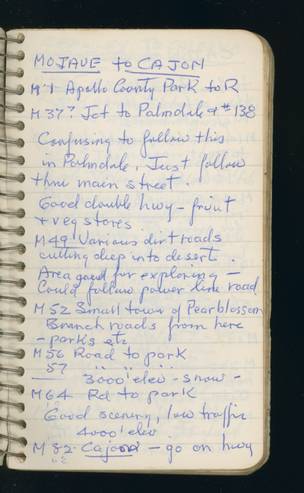 MOJAVE to CAJON
M 1 Apollo County Park to R
M 37? Jct to Palmdale & # 138
Confusing to follow this
in Palmdale, Just follow
thru main street.
Good double hwy - fruit
+ veg stores
M 49 Various dirt roads
cutting deep into desert.
Area good for exploring -
Could follow power line road
M 52 Small town of Pearblossom
Branch roads from here
- parks etc
M 56 Road to park
57 " " "
3000' elev - snow -
M 64 Rd to park
Good scenery, low traffic
4000' elev
M 82 Cajon - go on hwy